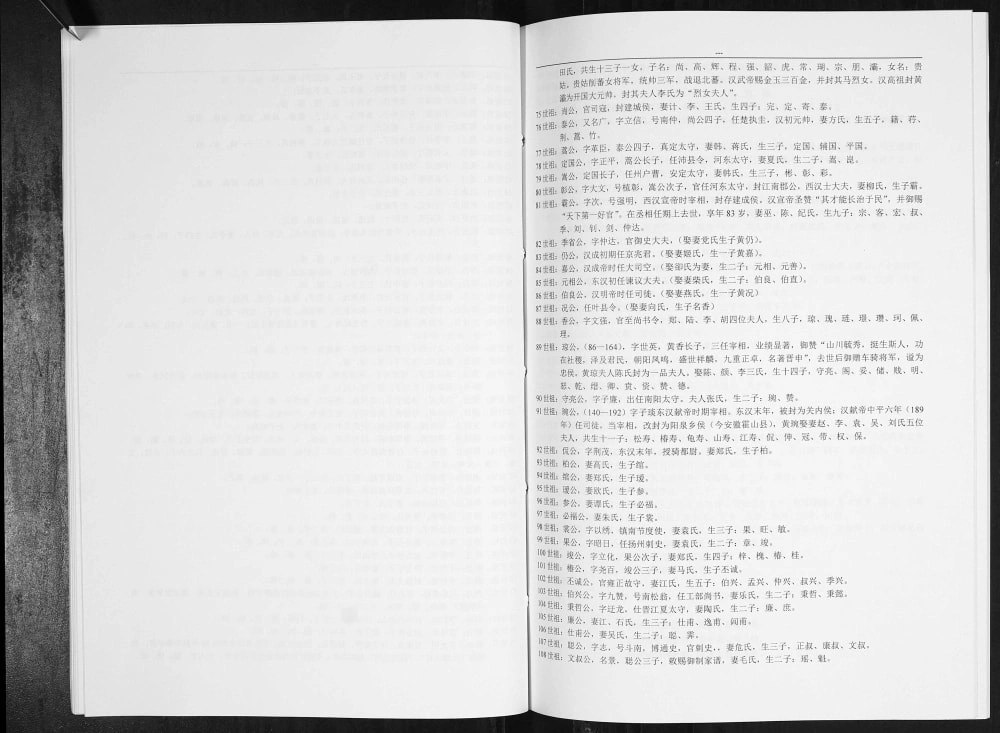 田氏，共生十三子一女，子名：尚、高、辉、程、强、韶、虎、常、瑚、宗、朋、灞，女名：贵
姑。贵姑削蕃女将军，统帅三军，战退北蕃。汉武帝赐金玉三百金，并封其马烈女。汉高祖封黄
灞为开国大元帅，封其夫人李氏为“烈女夫人”。
75世祖：尚公，官司寇，封建城侯，妻计、李、王氏，生四子：完、定、寄、泰。
76世祖：泰公，又名广，字立信，号南仲，尚公四子，任楚执圭，汉初元帅，妻方氏，生五子，籍、荐、
荆、蒿、竹。
77世祖：蒿公，字革臣，泰公四子，真定太守，妻韩、蒋氏，生三子，定国、辅国、平国。
78世祖：定国公，字正平，蒿公长子，任沛县令，河东太守，妻夏氏，生二子：嵩、崑。
79世祖：嵩公，定国长子，任州户曹，安定太守，妻韩氏，生三子，彬、彰、彩。
80世祖：彰公，字大文，号植彰，嵩公次子，官任河东太守，封江南郡公，西汉士大夫，妻柳氏，生子霸。
81世祖：霸公，字次，号强明，西汉宣帝时宰相，封存建成侯，汉宣帝圣赞“其才能长治于民”，并御赐
“天下第一好官”。在丞相任期上去世，享年 83 岁，妻巫、陈、纪氏，生九子：宗、客、宏、叔、
季、刘、钊、剑、仲达。
82世祖：季省公，字仲达，官御史大夫，（娶妻党氏生子黄仍）。
83世祖：仍公，汉成初期任京兆君。（娶妻姬氏，生一子黄嘉）。
84世祖：嘉公，汉成帝时任大司空，（娶郤氏为妻，生二子：元相、元善）。
85世祖：元相公，东汉初任谏议大夫，（娶妻柴氏，生二子：伯良、伯直）。
86世祖：伯良公，汉明帝时任司徒，（娶妻燕氏，生一子黄况）
87世祖：况公，任叶县令。（娶妻向氏，生子名香）
88世祖：香公，字文强，官至尚书令，郑、陆、李、胡四位夫人，生八子，琼、瑰、琏、璟、瓒、珂、佩、
理。
89世祖：琼公，（86—164），字世英，黄香长子，三任宰相，业绩显著，御赞“山川毓秀，挺生斯人，功
在社稷，泽及君民，朝阳凤鸣，盛世祥麟，九重正卓，名著晋申”，去世后御赠车骑将军，谥为
忠侯。黄琼夫人陈氏封为一品夫人。娶陈、颜、李三氏，生十四子，守亮、阁、妥、储、贱、明、
慈、乾、缙、卿、贲、资、赞、德。
90世祖：守亮公，字子廉，出任南阳太守。夫人张氏，生二子：琬、赞。
91世祖：琬公，（140—192）字子琰东汉献帝时期宰相。东汉末年，被封为关内侯；汉献帝中平六年（189
年）任司徒，当宰相，改封为阳泉乡侯（今安徽霍山县），黄琬娶妻赵、李、袁、吴、刘氏五位
夫人，共生十一子；松寿、椿寿、龟寿、山寿、江寿、侃、伸、冠、带、权、保。
92世祖：侃公，字荆茂，东汉末年，授骑都尉。妻郑氏，生子柏。
93世祖：柏公，妻高氏，生子绾。
94世祖：绾公，妻郑氏，生子瑷。
95世祖：瑷公，妻欣氏，生子参。
96世祖：参公，妻谭氏，生子必福。
97世祖：必福公，妻朱氏，生子裳。
98世祖：裳公，字以绣，镇南节度使，妻袁氏，生三子：果、旺、敏。
99世祖：果公，字昭日，任扬州刺史，妻袁氏，生二子：章、竣。
100世祖：竣公，字立化，果公次子，妻郑氏，生四子：梓、槐、椿、桂。
101世祖：椿公，字尧百，竣公三子，妻马氏，生子丕诚。
102世祖：丕诚公，官雍正故守，妻江氏，生五子：伯兴、孟兴、仲兴、叔兴、季兴。
103世祖：伯兴公，字九赞，号南松翁，任工部尚书，妻乐氏，生二子：秉哲、秉懿。
104世祖：秉哲公，字迁龙，仕晋江夏太守，妻陶氏，生二子：廉、庶。
105世祖：廉公，妻江、石氏，生三子：仕甫、逸甫、闾甫。
106世祖：仕甫公，妻吴氏，生二子；聪、霁。
107世祖：聪公，字志，号斗南，博通史，官刺史，，妻危氏，生三子，正叔、康叔、文叔。
108世祖：文叔公，名景，聪公三子，敕赐御制家谱，妻毛氏，生二子：瑶、魁。